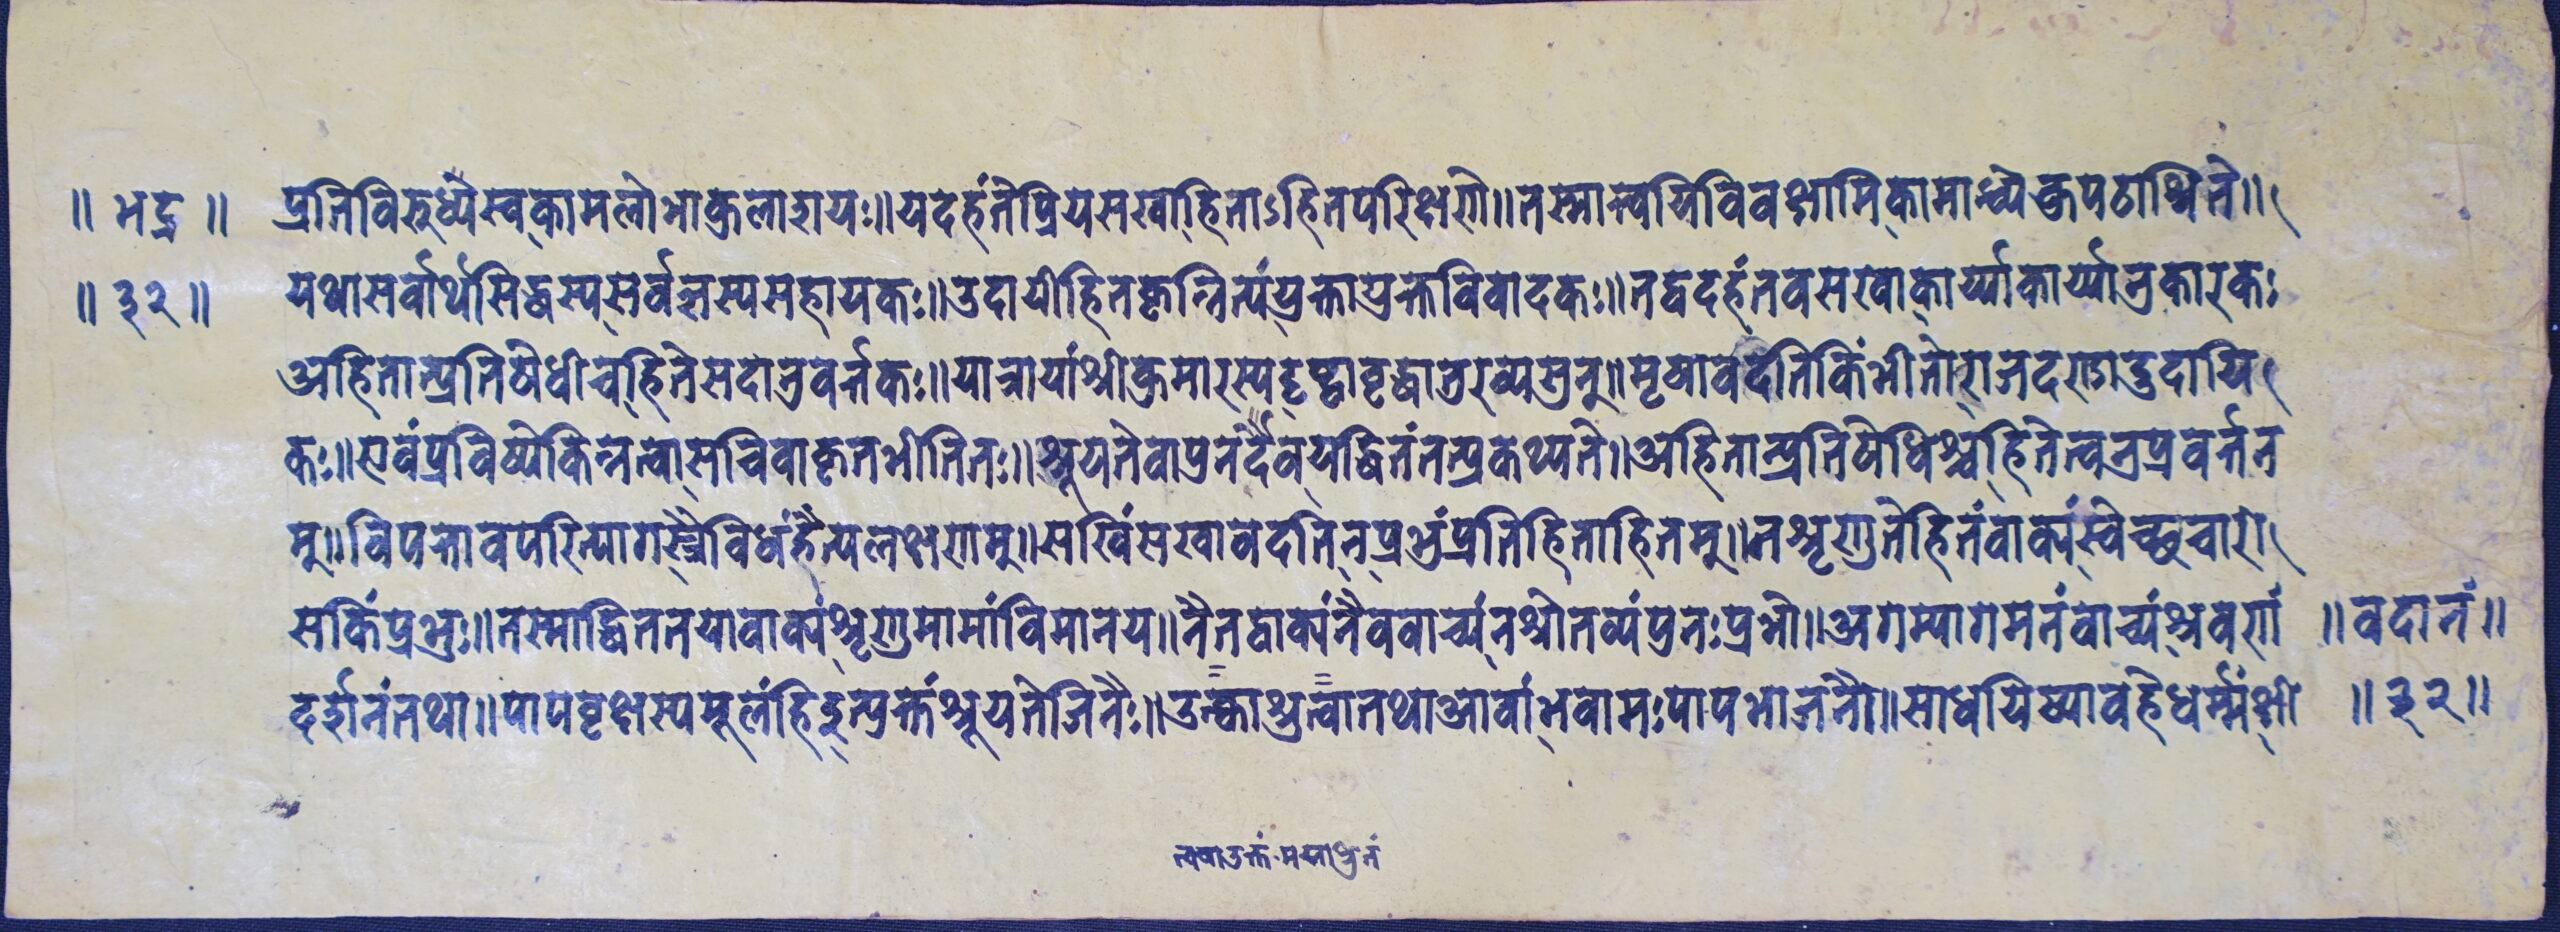 ॥ भद्र ॥ प्रतिविरुध्यैस्वकामलोभाकुलाशयः॥यदहंतेप्रियसखाहिताऽहितपरिक्षणे॥तस्मात्त्वयिविवक्षामिकामान्ध्येकुपठाश्रिते॥
॥ ३२ ॥ यथासर्वार्थसिद्धस्यसर्वज्ञस्यसहायकः॥उदायीहितकृन्नित्यंयुक्तायुक्तविवादकः॥तद्वदहंतवसखाकार्य्याकार्य्यानुकारकः
अहितान्प्रतिषेधीचहितेसदानुवर्त्तकः॥यात्रायांश्रीकुमारस्यदृष्ट्वावृद्धातुरव्यसुनु॥मृषावदंतिकिंभीतोराजदण्डादुदायि
कः॥एवंप्रविष्येकिन्नत्वासचिवाकृतभीतितः॥श्रूयतेवापुनर्दैवयद्धितंतत्प्रकथ्यते॥अहितान्प्रतिषेधिश्चहितेत्वनुप्रवर्त्तन
म्॥विपत्तावपरित्यागस्त्रैविधंहैत्यलक्षणम्॥सखिंसखावदतिनप्रभुंप्रतिहिताहितम्॥नशृणुतेहितंवाक्यंस्वेच्छचारो
सकिंप्रभुः॥तस्माद्धिततयावाक्यंशृणुमामांविमानय॥नैतद्वाक्यंनैववाच्यंनश्रोतव्यंपुनःप्रभो॥अगम्यागमनंवाच्यंश्रवणं ॥ वदानं ॥
दर्शनंतथा॥पापवृक्षस्यमूलंहिइत्युक्तंश्रूयतेजिनैः॥उक्त्वाश्रुत्वातथाआवांभवामःपापभाजनौ॥साधयिष्यावहेधर्म्मंश्री ॥ ३२ ॥
त्वयाउक्तं मयाश्रुतं